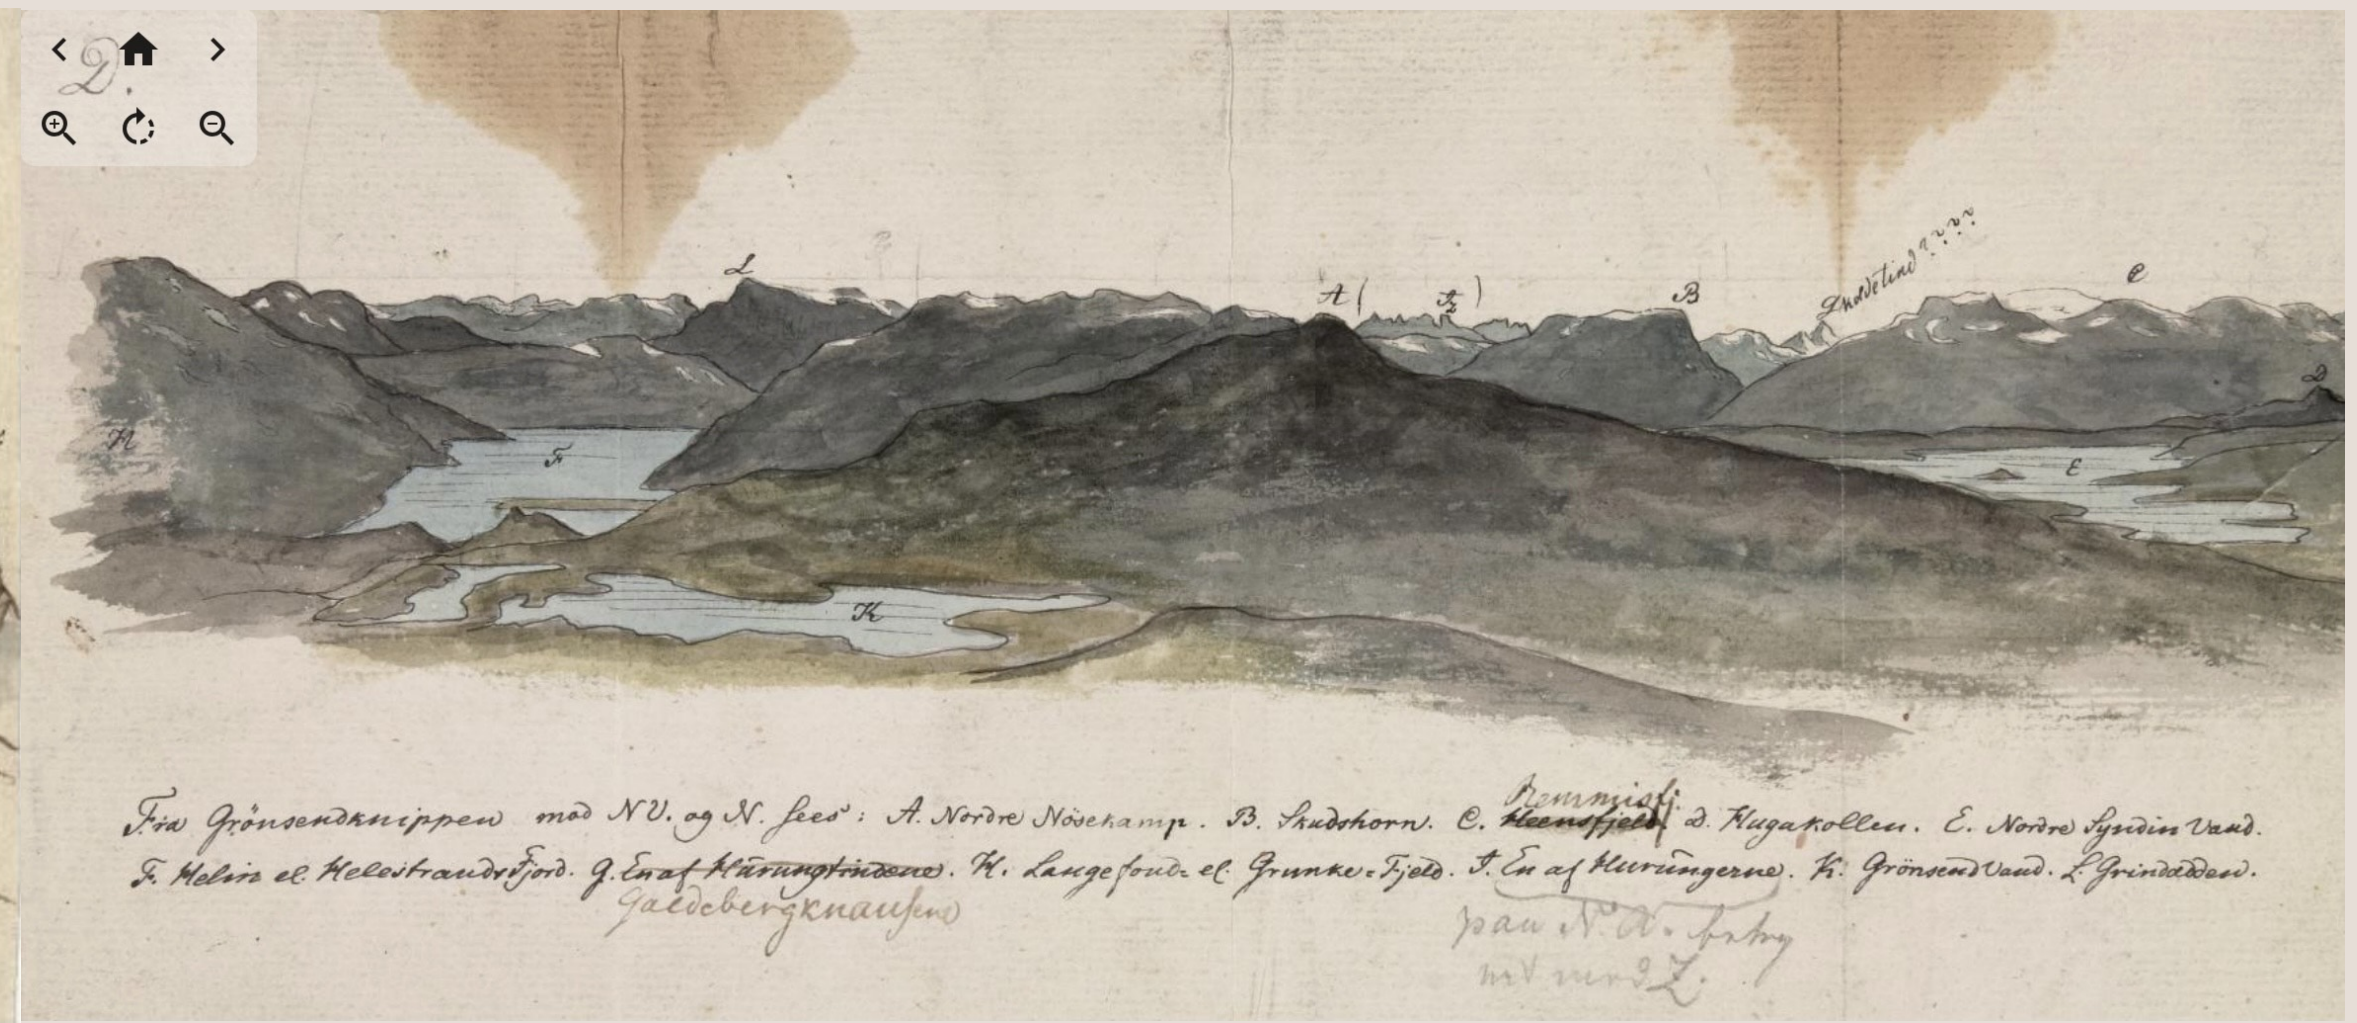 D.
L
A ( Z )
B
Skodetind????
C
D
H
F
E
K
Remmisfj.
Fra Grönsendknippen mod NV. og N. sees: A. Nordre Nösekamp. B. Skudshorn. C. Heensfjeld. D. Hugakollen. E. Nordre Syndin Vand.
F. Helin el. Helestrands Fjord. G. En af Hurungtindene. H. Langesond= el. Grunke=Fjeld. I. En af Hurungerne. K. Grönsend Vand. L. Grindadden.
Galdebergknausene
N. A.
med Z.